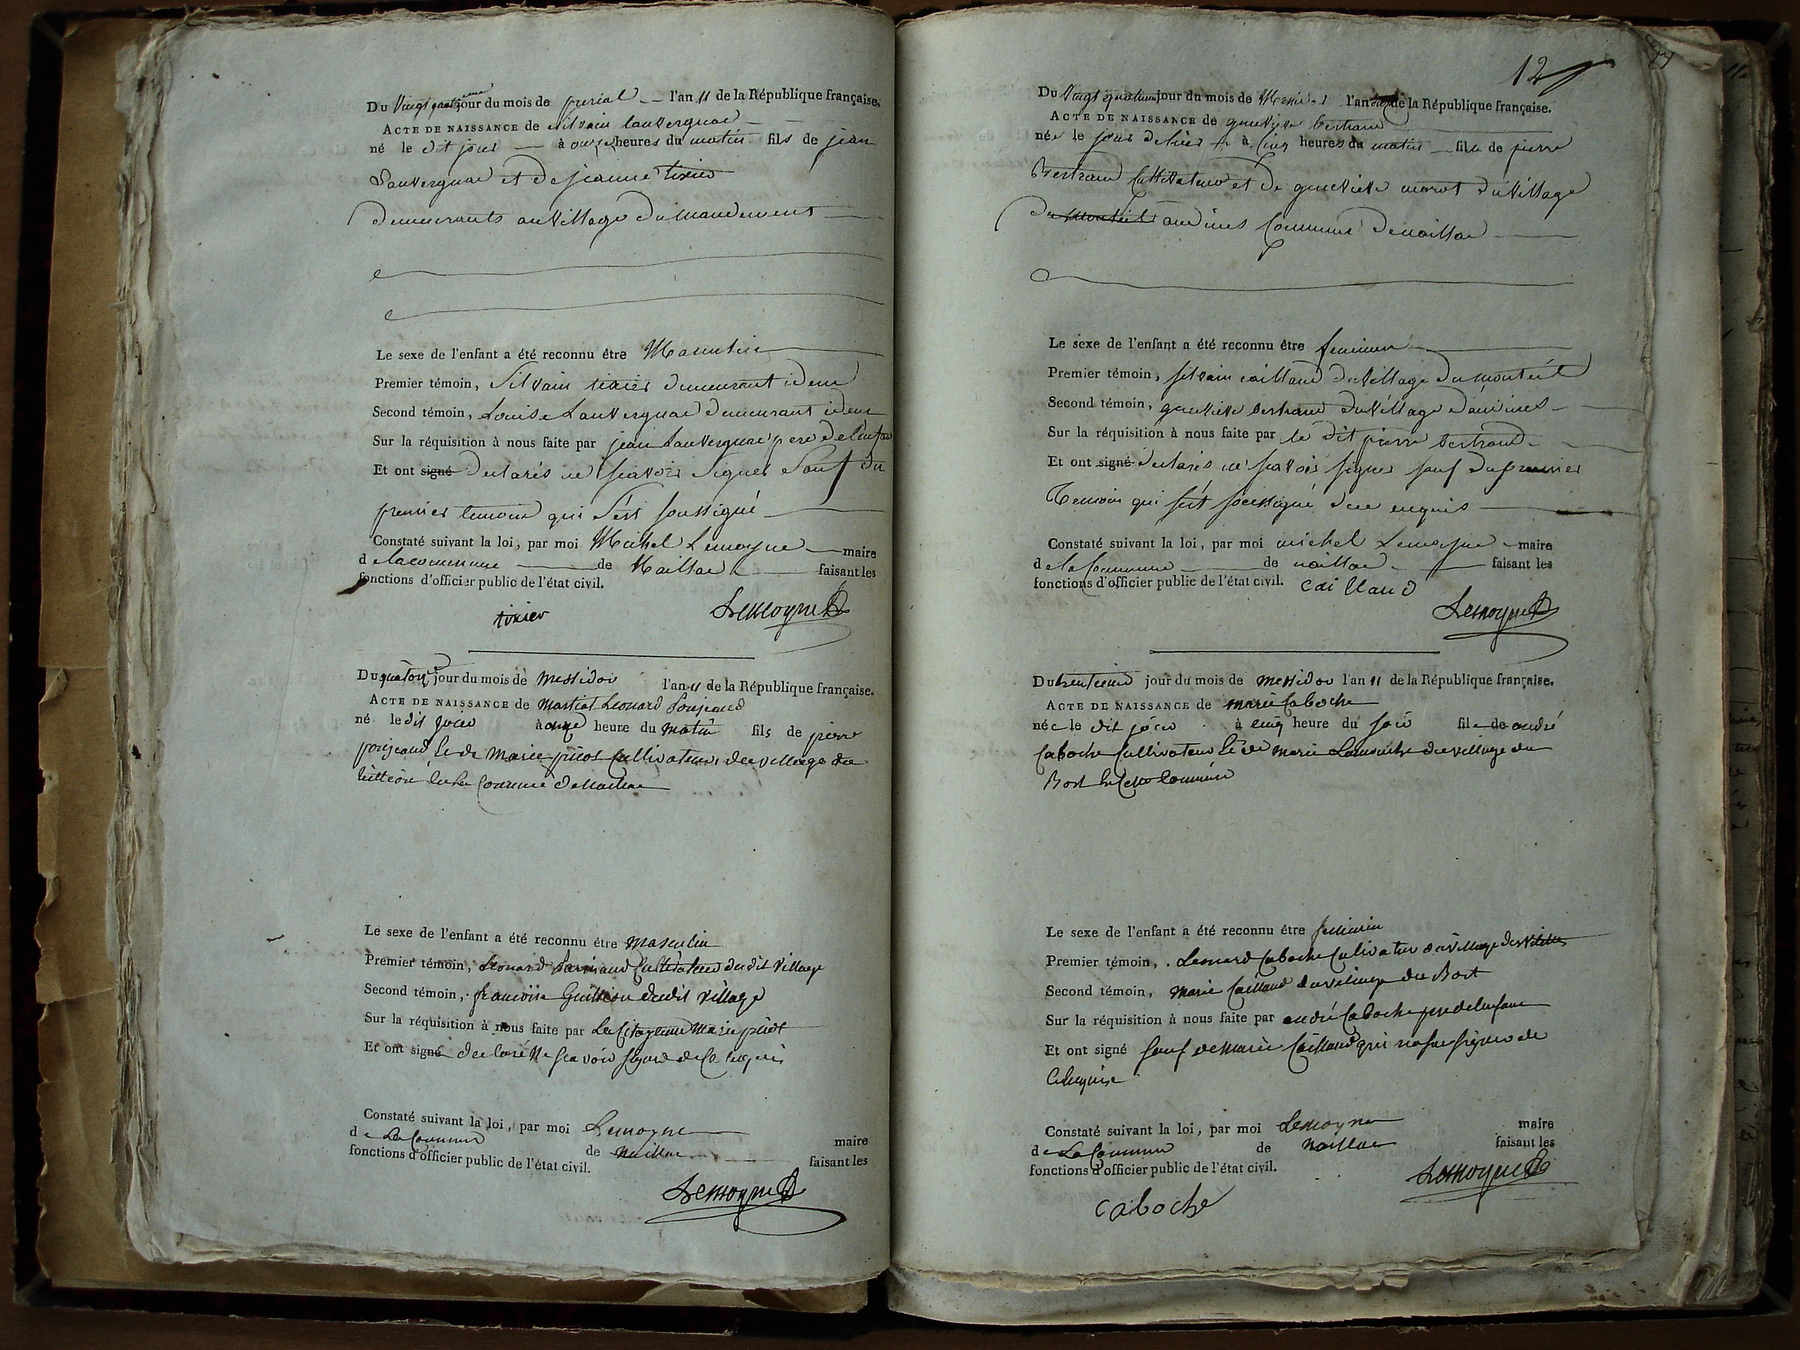 Du Vingt quatrieme jour du mois de prerial l'an 11 de la République française.
ACTE DE NAISSANCE de Silvain Lauvergnac
né le dit jour à onze heures du matin fils de jean
Lauvergnac et de jeanne tixier
demeurants au Village du mandement
Le sexe de l'enfant a été reconnu être Masculin
Premier témoin, Silvain tixier demeurant idem
Second témoin, Louise Lauvergnac demeurant idem
Sur la réquisition à nous faite par jean Lauvergnac pere de l'enfan
Et ont signé declarés ne scavoir signer Sauf du
premier temoin qui s'est soussigné
Constaté suivant la loi, par moi Michel Lemoyne maire
de la commune de Naillac faisant les
fonctions d'officier public de l'état civil.
tixier Lemoyne
Du quatorz jour du mois de Messidor l'an 11 de la République française.
ACTE DE NAISSANCE de Martial Leonard
né le dit jour à onze heure du matin fils de pierre
et de Marie pinot Cultivateur du village du
la Commune de Naillac
Le sexe de l'enfant a été reconnu être Masculin
Premier témoin, Leonard Cultivateur dudit Village
Second témoin, francoise Guitton dudit village
Sur la réquisition à nous faite par La Citoyenne Marie pinot
Et ont signé declaré ne scavoir signer de ce enquis
Constaté suivant la loi, par moi Lemoyne maire
de La Commune de Naillac faisant les
fonctions d'officier public de l'état civil.
Lemoyne
12
Du Vingt quatrieme jour du mois de Messidor l'an onze de la République française.
ACTE DE NAISSANCE de genevieve bertrand
née le jour de hier à cinq heures du matin fille de pierre
Bertrand Cultivateur et de genevieve morot du Village
du Monteil audines Commune de naillac
Le sexe de l'enfant a été reconnu être feminin
Premier témoin, silvain caillaud du Village du Monteil
Second témoin, genevieve bertrand du Village d'audines
Sur la réquisition à nous faite par le dit pierre bertrand
Et ont signé declarés ne scavoir signer sauf du premier
Temoin qui s'est soussigné de ce enquis
Constaté suivant la loi, par moi michel Lemoyne maire
de la Commune de naillac faisant les
fonctions d'officier public de l'état civil.
Caillaud Lemoyne
Du trentieme jour du mois de Messidor l'an 11 de la République française.
ACTE DE NAISSANCE de marie Caboche
née le dit jour à cinq heure du soir fille de andré
Caboche Cultivateur et de marie Lamouche du village du
Bost de cette Commune
Le sexe de l'enfant a été reconnu être feminin
Premier témoin, Leonard Caboche Cultivateur du village des
Second témoin, Marie Caillaud du village du Bost
Sur la réquisition à nous faite par andré Caboche pere de lenfant
Et ont signé sauf de Marie Caillaud qui na su signer de
Ce enquise
Constaté suivant la loi, par moi Lemoyne maire
de La Commune de Naillac faisant les
fonctions d'officier public de l'état civil.
Caboche Lemoyne